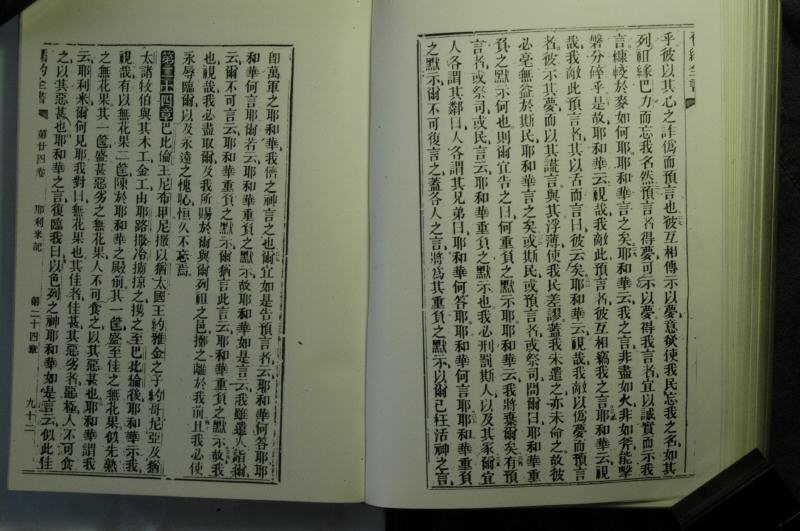 舊約全書
乎彼以其心之詐爲而預言也彼互相傳示以夢意欲使我民忘我之名如其
列祖緣巴力而忘我名然預言者得夢可示以夢得我言者宜以誠實而示我
言糠較於麥如何耶耶和華言之矣耶和華云我之言非盡如火非如斧能擊
磐分碎乎是故耶和華云視哉我敵此預言者彼互相竊我之言耶和華云視
哉我敵此預言者其以舌而言曰彼云矣耶和華云視哉我敵以僞夢而預言
者彼示其夢而以其謊言與其浮薄使我民差謬蓋我未遣之亦未命之故彼
必毫無益於斯民耶和華言之矣或斯民或預言者或祭司問爾曰耶和華重
負之默示何也則爾宜告之曰何重負之默示耶耶和華云我將棄爾矣有預
言者或祭司或民言云耶和華重負之默示也我必刑罰斯人以及其家爾宜
人各謂其鄰曰人各謂其兄弟曰耶和華何答耶耶和華何言耶耶和華重負
之默示爾不可復言之蓋各人之言將爲其重負之默示以爾已枉活神之言
卽萬軍之耶和華我儕之神言之也爾宜如是告預言者云耶和華何答耶耶
和華何言耶爾若云耶和華重負之默示故耶和華如是言云我雖遣人詣爾
云爾不可言云耶和華重負之默示爾猶言此言云耶和華重負之默示故我
也視哉我必盡取爾及我所賜於爾與爾列祖之邑擲之離於我前且我必使
永辱臨爾以及永遠之愧恥恒久不忘焉
第二十四章巴比倫王尼布甲尼撒以猶太國王約雅金之子約哥尼亞及猶
太諸牧伯與其木工金工由耶路撒冷擄掠之攜之至巴比倫後耶和華示我
視哉有以無花果二筐陳於耶和華之殿前其一筐盛至佳之無花果似先熟
之無花果其一筐盛甚惡劣之無花果人不可食之以其惡甚也耶和華謂我
云耶利米爾何見耶我對曰無花果也其佳者佳甚其惡劣者惡極人不可食
之以其惡甚也耶和華之言復臨我曰以色列之神耶和華如是言云似此佳
舊約全書 第廿四卷 耶利米記 第二十四章 九十二